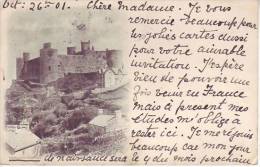 Oct. 26 - 01. Chère Madame. Je vous
remercie beaucoup pour
les jolies cartes aussi
pour votre aimable
invitation. J'espère
bien de pouvoir une
fois venir en France
mais à présent mes
études me oblige à
rester ici. Je me réjouis
beaucoup car mon jour
de naissance sera le 9 du mois prochain